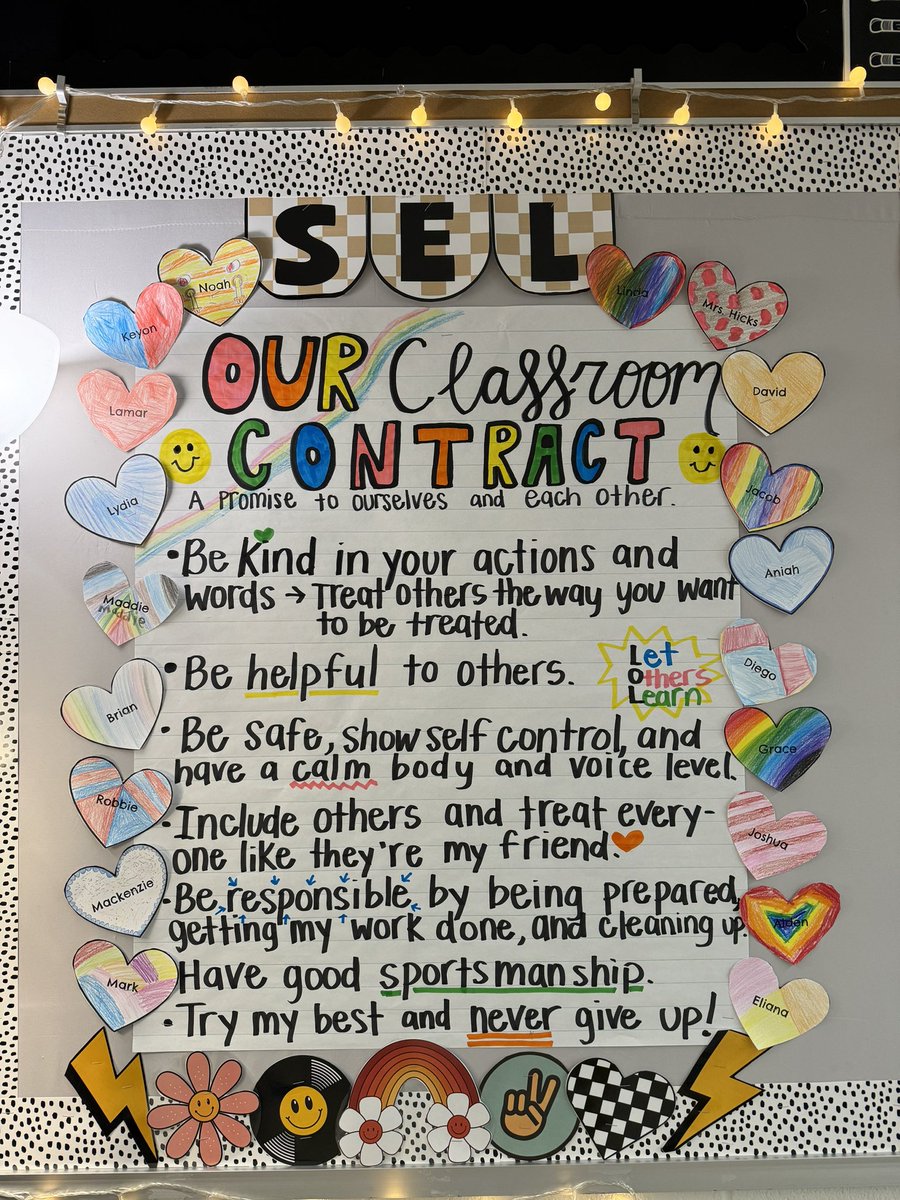 SEL
OUR Classroom
CONTRACT
A Promise to ourselves and each other.
• Be Kind in your actions and
words → Treat others the way you want
to be treated.
• Be helpful to others.
Let
Others
Learn
• Be safe, show self control, and
have a calm body and voice level.
• Include others and treat every-
one like they're my friend.
• Be responsible by being prepared,
getting my work done, and cleaning up.
• Have good sportsmanship.
• Try my best and never give up!
Noah
Keyon
Lamar
Lydia
Maddie
Maddie
Brian
Robbie
Mackenzie
Mark
Linda
Mrs. Hicks
David
Jacob
Aniah
Diego
Grace
Joshua
Aiden
Eliana